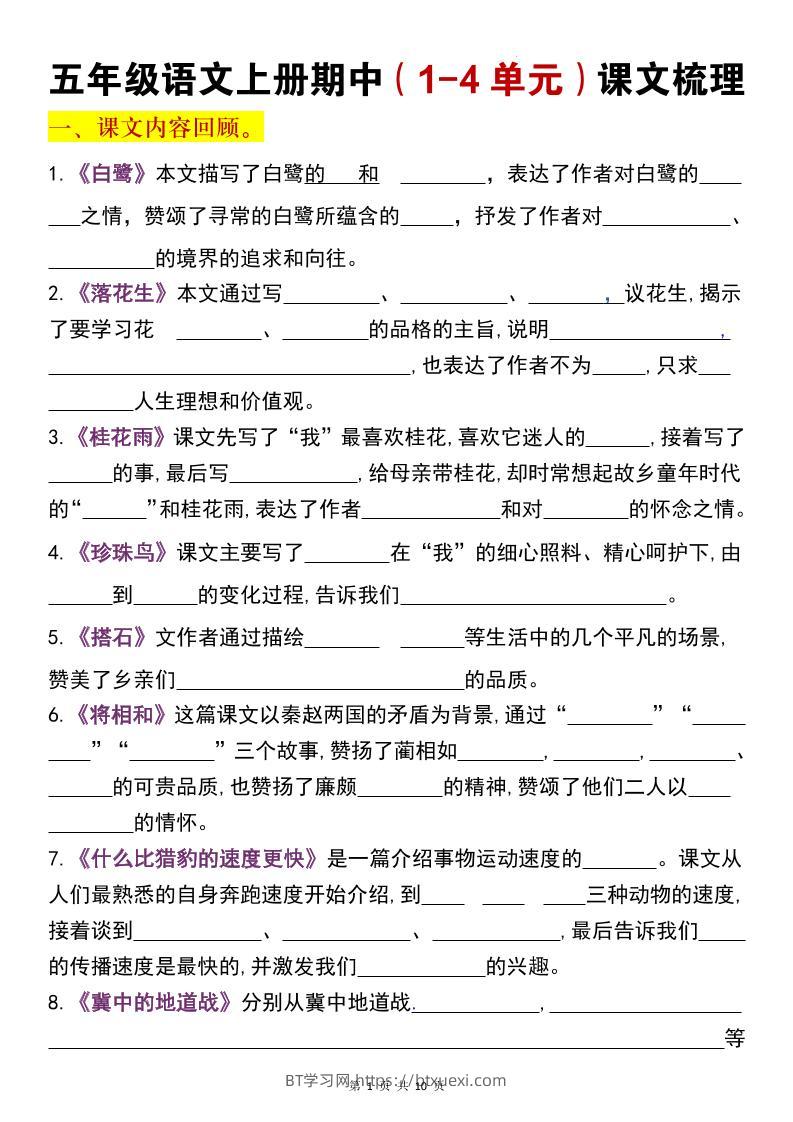 五年级语文上册期中（1-4 单元）课文梳理
一、课文内容回顾。
1.《白鹭》本文描写了白鹭的___和 ________，表达了作者对白鹭的____
___之情，赞颂了寻常的白鹭所蕴含的_____，抒发了作者对____________、
__________的境界的追求和向往。
2.《落花生》本文通过写_________、__________、_______，_议花生,揭示
了要学习花 ________、________的品格的主旨,说明________________，
__________________________________,也表达了作者不为_____,只求___
________人生理想和价值观。
3.《桂花雨》课文先写了“我”最喜欢桂花,喜欢它迷人的______,接着写了
______的事,最后写____________,给母亲带桂花,却时常想起故乡童年时代
的“______”和桂花雨,表达了作者_____________和对________的怀念之情。
4.《珍珠鸟》课文主要写了________在“我”的细心照料、精心呵护下,由
______到______的变化过程,告诉我们_________________________。
5.《搭石》文作者通过描绘_______ ______等生活中的几个平凡的场景,
赞美了乡亲们___________________________的品质。
6.《将相和》这篇课文以秦赵两国的矛盾为背景,通过“________”“_____
____”“________”三个故事,赞扬了蔺相如________,________,________、
______的可贵品质,也赞扬了廉颇________的精神,赞颂了他们二人以____
________的情怀。
7.《什么比猎豹的速度更快》是一篇介绍事物运动速度的_______。课文从
人们最熟悉的自身奔跑速度开始介绍,到____ ____ ____三种动物的速度,
接着谈到____________、____________、____________,最后告诉我们____
的传播速度是最快的,并激发我们____________的兴趣。
8.《冀中的地道战》分别从冀中地道战.____________,__________________
________________________________________________________________等
BT学习网 https://btxuexi.com
第 1 页 共 10 页